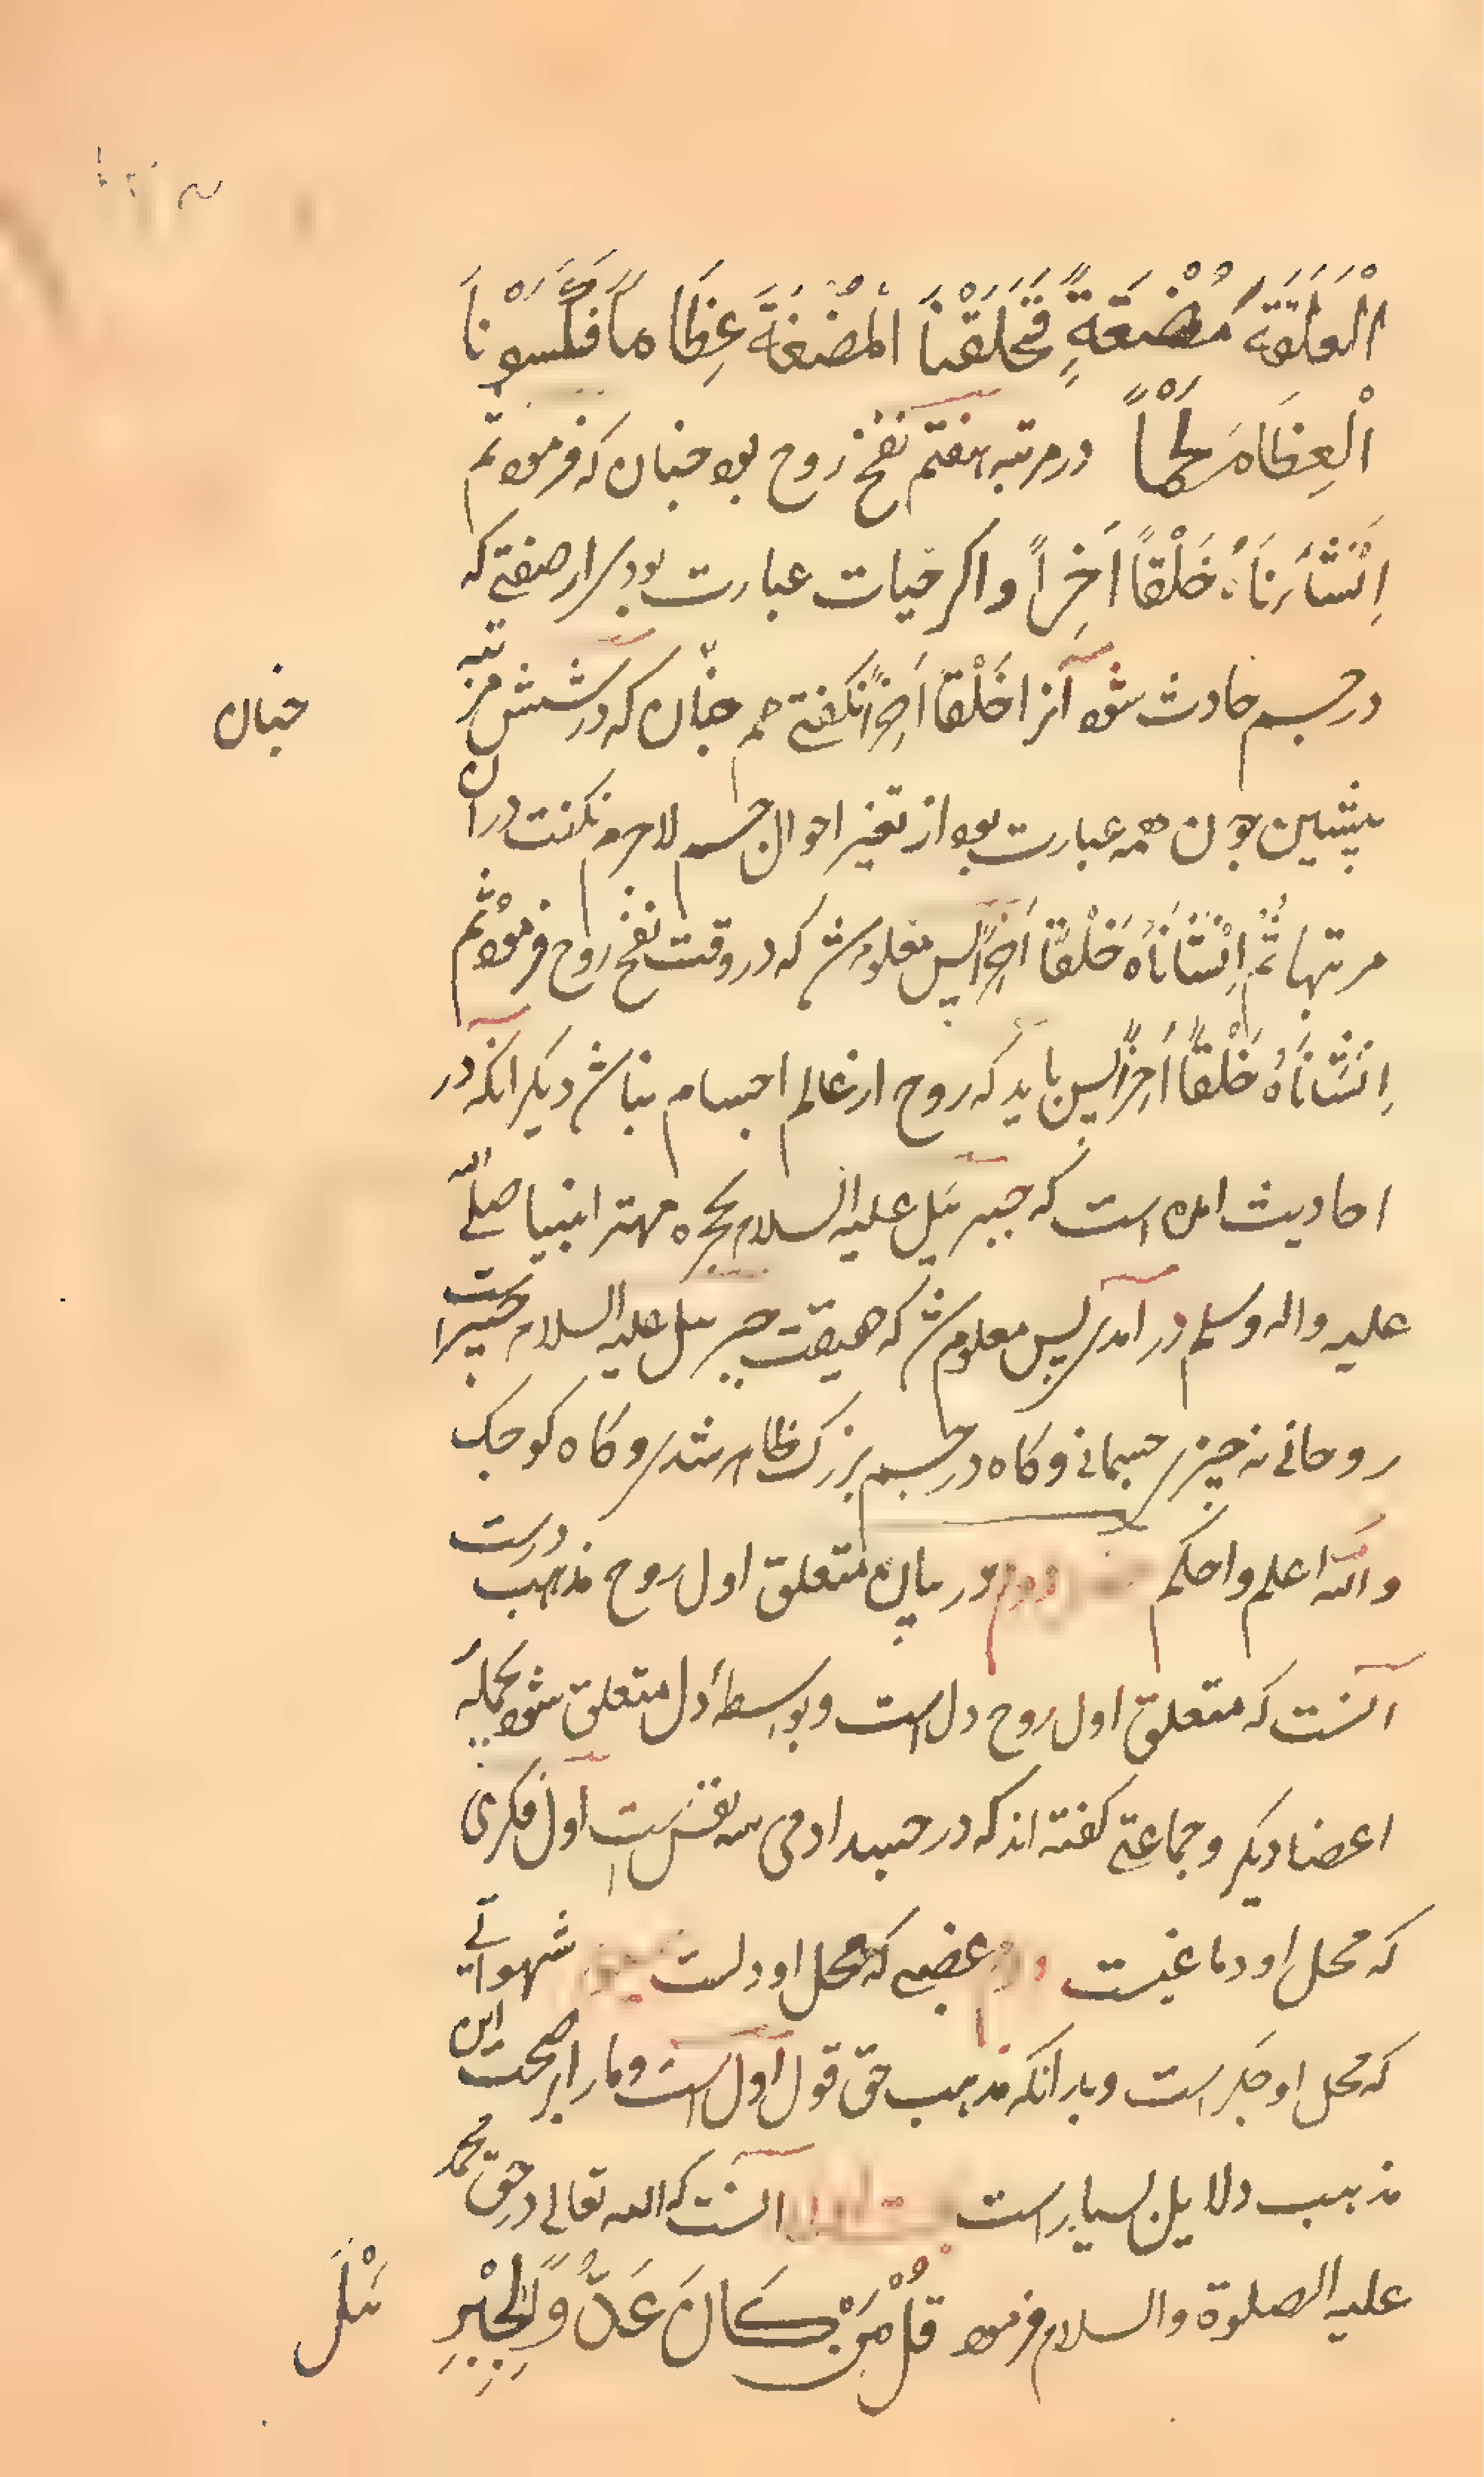 الْعَلَقَةَ مُضْغَةً فَخَلَقْنَا الْمُضْغَةَ عِظَاماً فَكَسَوْنَا
الْعِظَامَ لَحْماً در مرتبه هفتم نفخ روح بود چنان که فرمود ثم
اِنْشَأنَاهُ خَلْقاً اَخِراً و اکر حیات عبارت بودی از صفتے که
در جسم حادث شود آنرا خَلْقاً اَخِراً نکفتے هم چنان که در شش مرتبه
چنان
پیشین چون همه عبارت بود از تغیر احوال جسم لاجرم نکفت دران
مرتبها ثُمَّ اِنْشَانَاهُ خَلْقاً اَخِراً پس معلوم شد که در وقت نفخ روح فرمود ثم
اِنْشَانَاهُ خَلْقاً اَخِراً پس باید که روح از عالم اجسام نباشد دیکر انکه در
احادیث امده است که جبرئیل علیه السلام بحجره مهتر انبیا صلے الله
علیه واله وسلم در آمدی پس معلوم شد که حقیقت جبرئیل علیه السلام چیزیست
روحانے نه چیزی جسمانے و کاه در جسم بزرک ظاهر شدی و کاه کوچک
والله اعلم واحکم دوم در بیان متعلق اول روح مذهب درست
آنست که متعلق اول روح دل است و بواسطهٔ دل متعلق شود بجمله
اعضا دیکر و جماعتے کفته اند که در جسد ادمی سه نفس است اول فکری
که محل او دماغست دوم غضبے که محل او دلست سیوم شهوانے
که محل او جکر است و بدانکه مذهب حق قول اول است و مارا بر صحت این
مذهب دلایل بسیار است آنست که الله تعالے در حق محمد
علیه الصلوة والسلام فرمود قُلْ مَنْ كَانَ عَدُوًّا لِجِبْرِ
ئیل